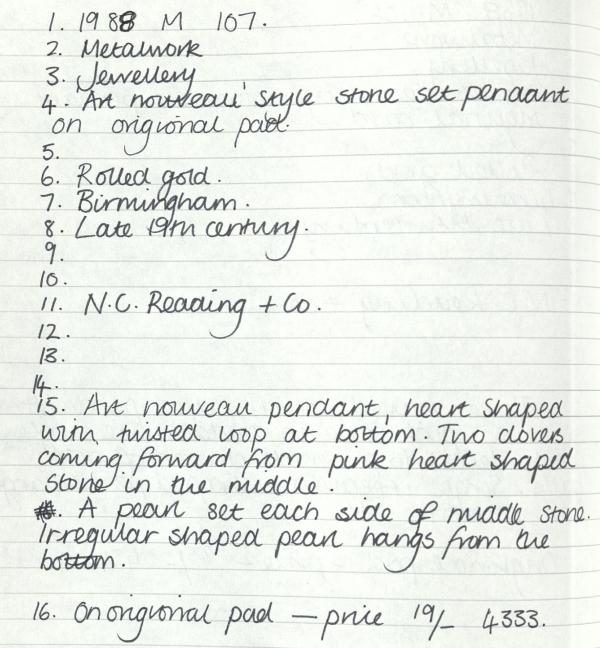 1. 1988 M 107.
2. Metalwork
3. Jewellery
4. Art nouveau' style stone set pendant
on origional pad.
5.
6. Rolled gold.
7. Birmingham.
8. Late 19th century.
9.
10.
11. N.C. Reading + Co.
12.
13.
14.
15. Art nouveau pendant, heart shaped
with twisted loop at bottom. Two clovers
coming forward from pink heart shaped
stone in the middle.
A pearl set each side of middle stone.
Irregular shaped pearl hangs from the
bottom.
16. On origional pad — price 19/- 4333.